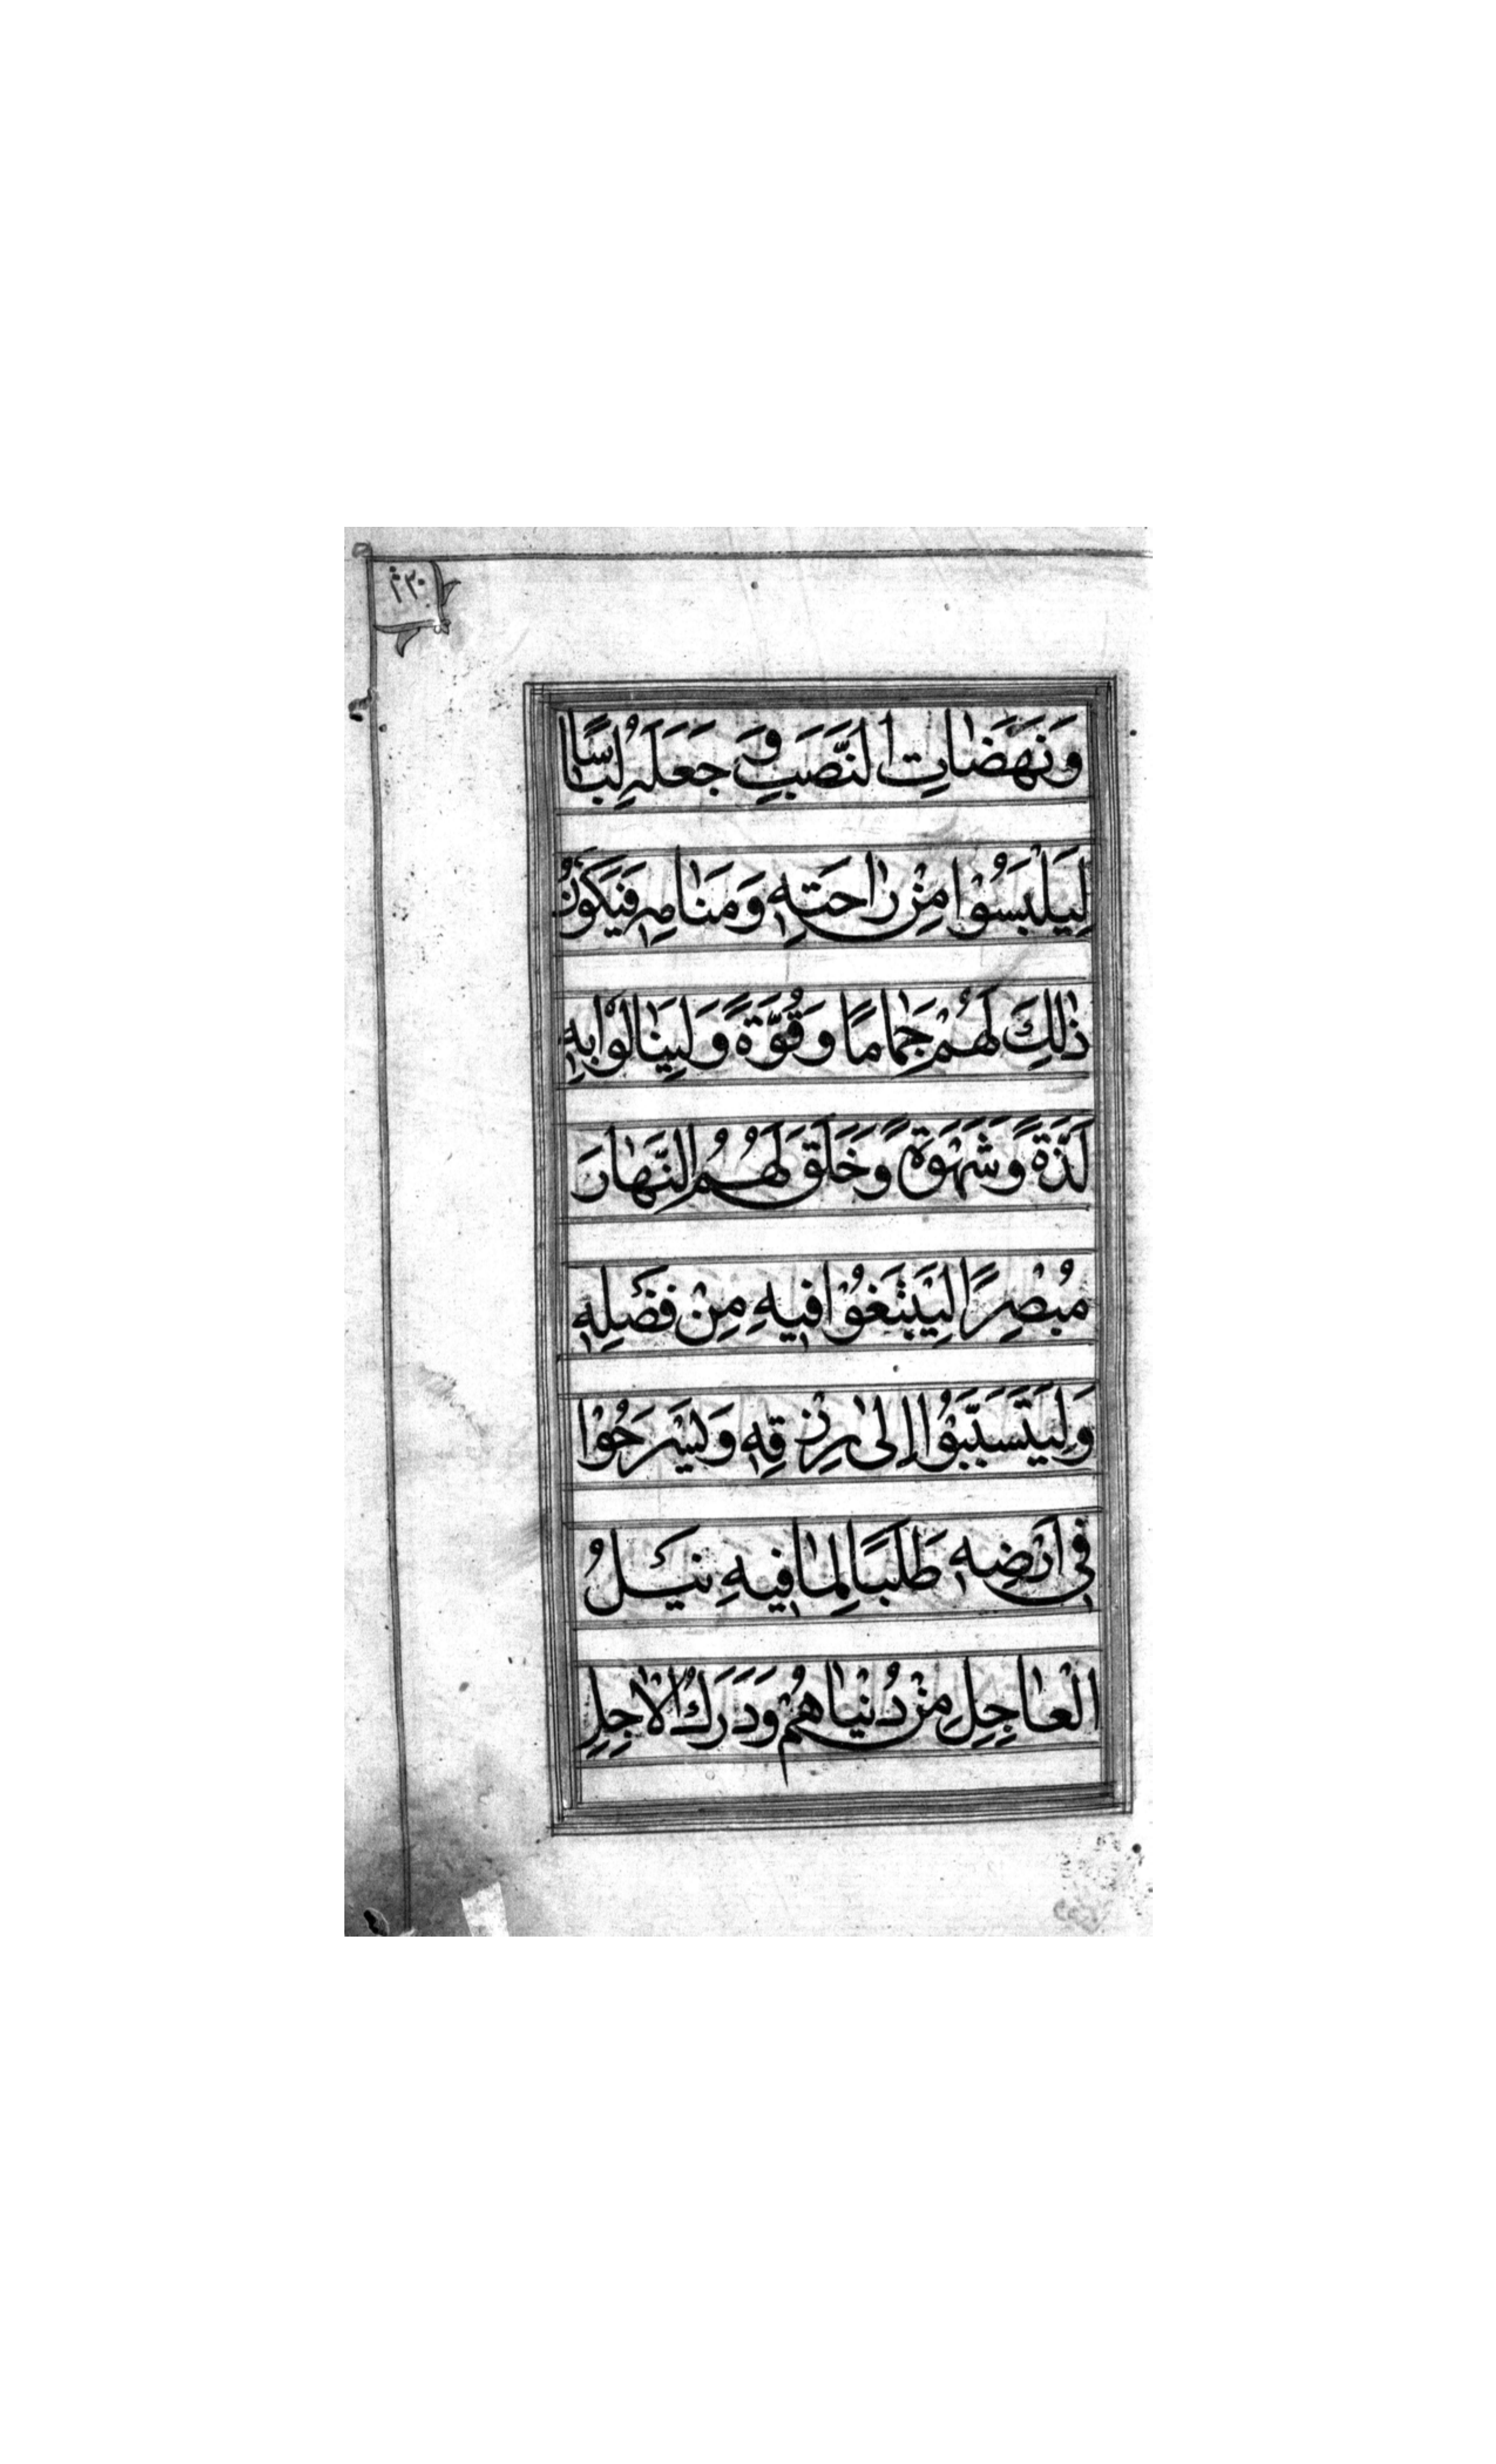 وَنَهَضَاتِ النَّصَبِ وَجَعَلَهُ لِبَاسًا
لِيَلْبَسُوْا مِنْ رَاحَتِهِ وَمَنَامِهِ فَيَكُوْنُ
ذٰلِكَ لَهُمْ جَمَامًا وَقُوَّةً وَلِيَنَالُوْا بِهِ
لَذَّةً وَشَهْوَةً وَخَلَقَ لَهُمُ النَّهَارَ
مُبْصِرًا لِيَبْتَغُوْا فِيهِ مِنْ فَضْلِهِ
وَلِيَتَسَبَّبُوْا اِلىٰ رِزْقِهِ وَيَسْرَحُوْا
فِي اَرْضِهِ طَلَبًا لِمَا فِيهِ نَيْلُ
الْعَاجِلِ مِنْ دُنْيَاهُمْ وَدَرَكُ الْاٰجِلِ